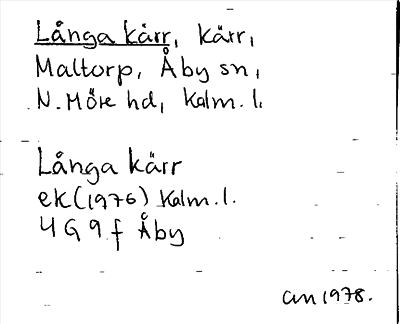 Långa kärr, kärr,
Maltorp, Åby sn,
N. Möre hd, Kalm. l.
Långa kärr
ek (1976) Kalm. l.
4G 9f Åby
an 1978.